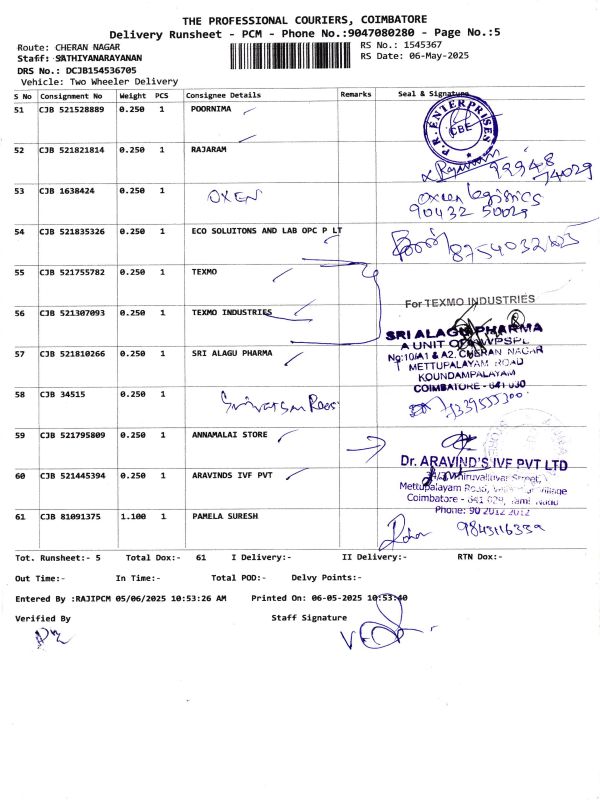 THE PROFESSIONAL COURIERS, COIMBATORE
Delivery Runsheet - PCM - Phone No.:9047080280 - Page No.:5
Route: CHERAN NAGAR
RS No.: 1545367
Staff: SATHIYANARAYANAN
RS Date: 06-May-2025
DRS No.: DCJB154536705
Vehicle: Two Wheeler Delivery
S No Consignment No Weight PCS Consignee Details Remarks Seal & Signature
51 CJB 521528889 0.250 1 POORNIMA
P.R. ENTERPRISES
CBE
52 CJB 521821814 0.250 1 RAJARAM
99948
74029
53 CJB 1638424 0.250 1 OXEN
Oxeen Logistics
90432 50029
54 CJB 521835326 0.250 1 ECO SOLUITONS AND LAB OPC P LT
8754032623
55 CJB 521755782 0.250 1 TEXMO
For TEXMO INDUSTRIES
56 CJB 521307093 0.250 1 TEXMO INDUSTRIES
SRI ALAGU PHARMA
A UNIT OF
57 CJB 521810266 0.250 1 SRI ALAGU PHARMA
No:10/A1 & A2, CHERAN NAGAR
METTUPALAYAM ROAD
KOUNDAMPALAYAM
COIMBATORE - 641 030
58 CJB 34515 0.250 1
59 CJB 521795809 0.250 1 ANNAMALAI STORE
60 CJB 521445394 0.250 1 ARAVINDS IVF PVT
Dr. ARAVIND'S IVF PVT LTD
Thiruvalluvar Street,
Mettupalayam Road, Village
Coimbatore - 641 029, Tamil Nadu
Phone: 90 2012 2012
61 CJB 81091375 1.100 1 PAMELA SURESH
9843116339
Tot. Runsheet:- 5 Total Dox:- 61 I Delivery:- II Delivery:- RTN Dox:-
Out Time:- In Time:- Total POD:- Delvy Points:-
Entered By :RAJIPCM 05/06/2025 10:53:26 AM Printed On: 06-05-2025 10:53:40
Verified By Staff Signature